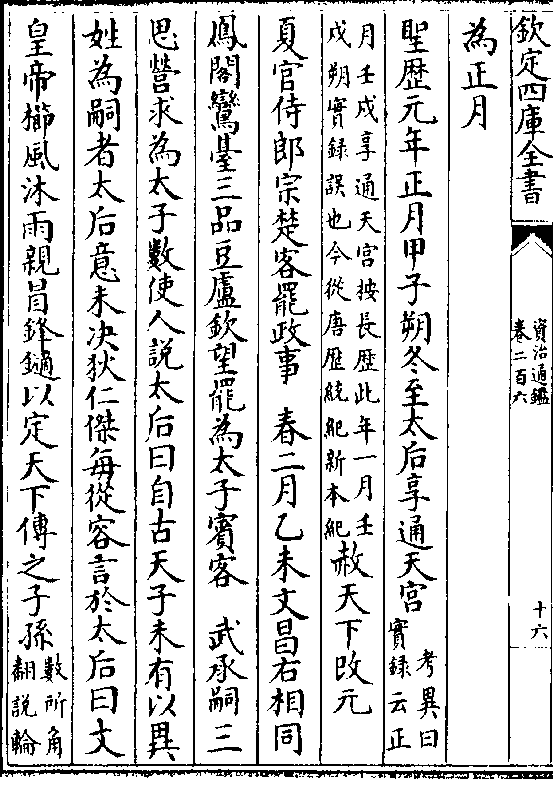 欽定四庫全書
資治通鑑
卷二百六
十六
為正月
聖歴元年正月甲子朔冬至太后享通天宫
考異曰
實錄云正
月壬戍享通天宫按長歴此年一月壬
戍朔實錄誤也今從唐歴統紀新本紀
赦天下改元
夏官侍郎宗楚客罷政事　春二月乙未文昌右相同
鳳閣鸞臺三品豆盧欽望罷為太子賓客　武承嗣三
思營求為太子數使人說太后曰自古天子未有以異
姓為嗣者太后意未决狄仁傑每從容言於太后曰文
皇帝櫛風沐雨親冒鋒鏑以定天下傳之子孫
數所角
翻說輪